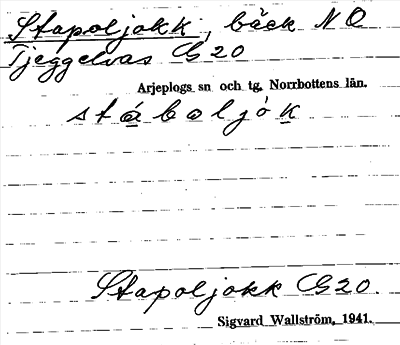 Stapoljokk, bäck NO
Tjeggelvas G20
Arjeplogs sn och tg, Norrbottens län.
stáboljók
Stapoljokk G20.
Sigvard Wallström, 1941.